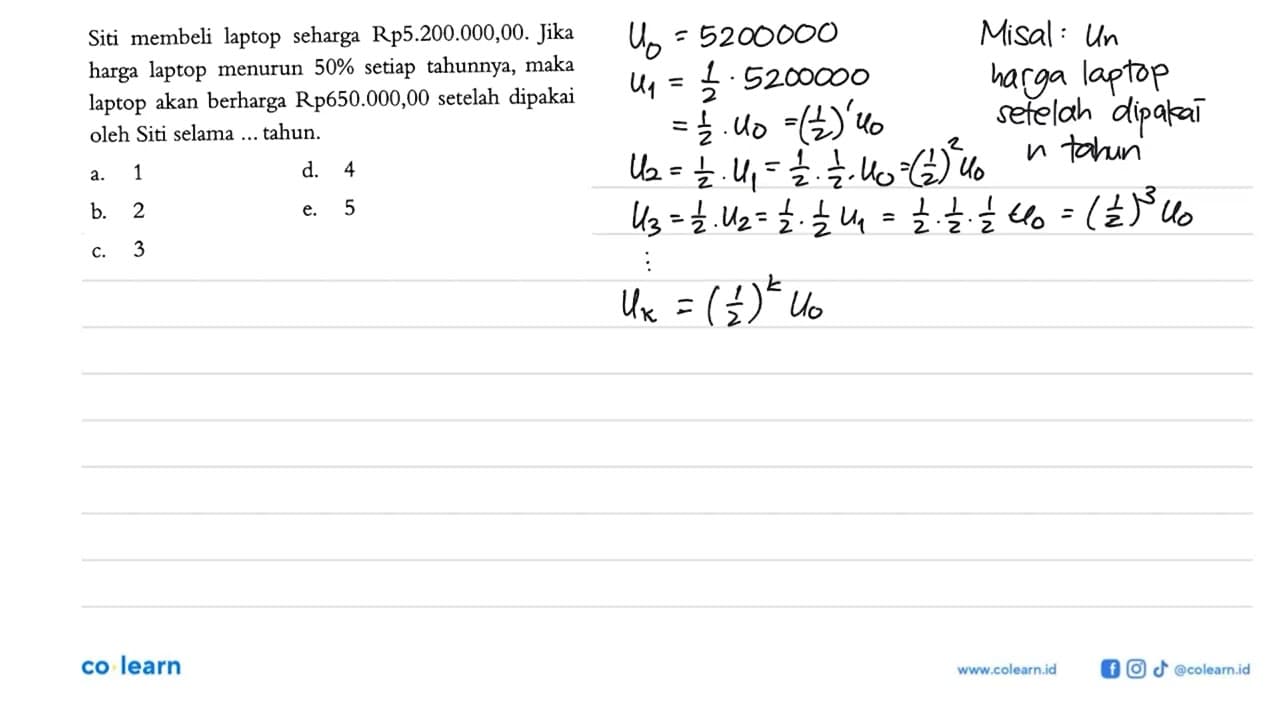 Siti membeli laptop seharga Rp5.200.000,00. Jika
harga laptop menurun 50% setiap tahunnya, maka
laptop akan berharga Rp650.000,00 setelah dipakai
oleh Siti selama ... tahun.
a. 1
d. 4
b. 2
e. 5
c. 3
U₀ = 5200000
U₁ = 1/2 · 5200000
= 1/2 . U₀ = (1/2)¹ U₀
U₂ = 1/2 . U₁ = 1/2 . 1/2 . U₀ = (1/2)² U₀
U₃ = 1/2 . U₂ = 1/2 . 1/2 U₁ = 1/2 . 1/2 . 1/2 U₀ = (1/2)³ U₀
⋮
Uₖ = (1/2)ᵏ U₀
Misal : Un
harga laptop
setelah dipakai
n tahun
co·learn
www.colearn.id
@colearn.id